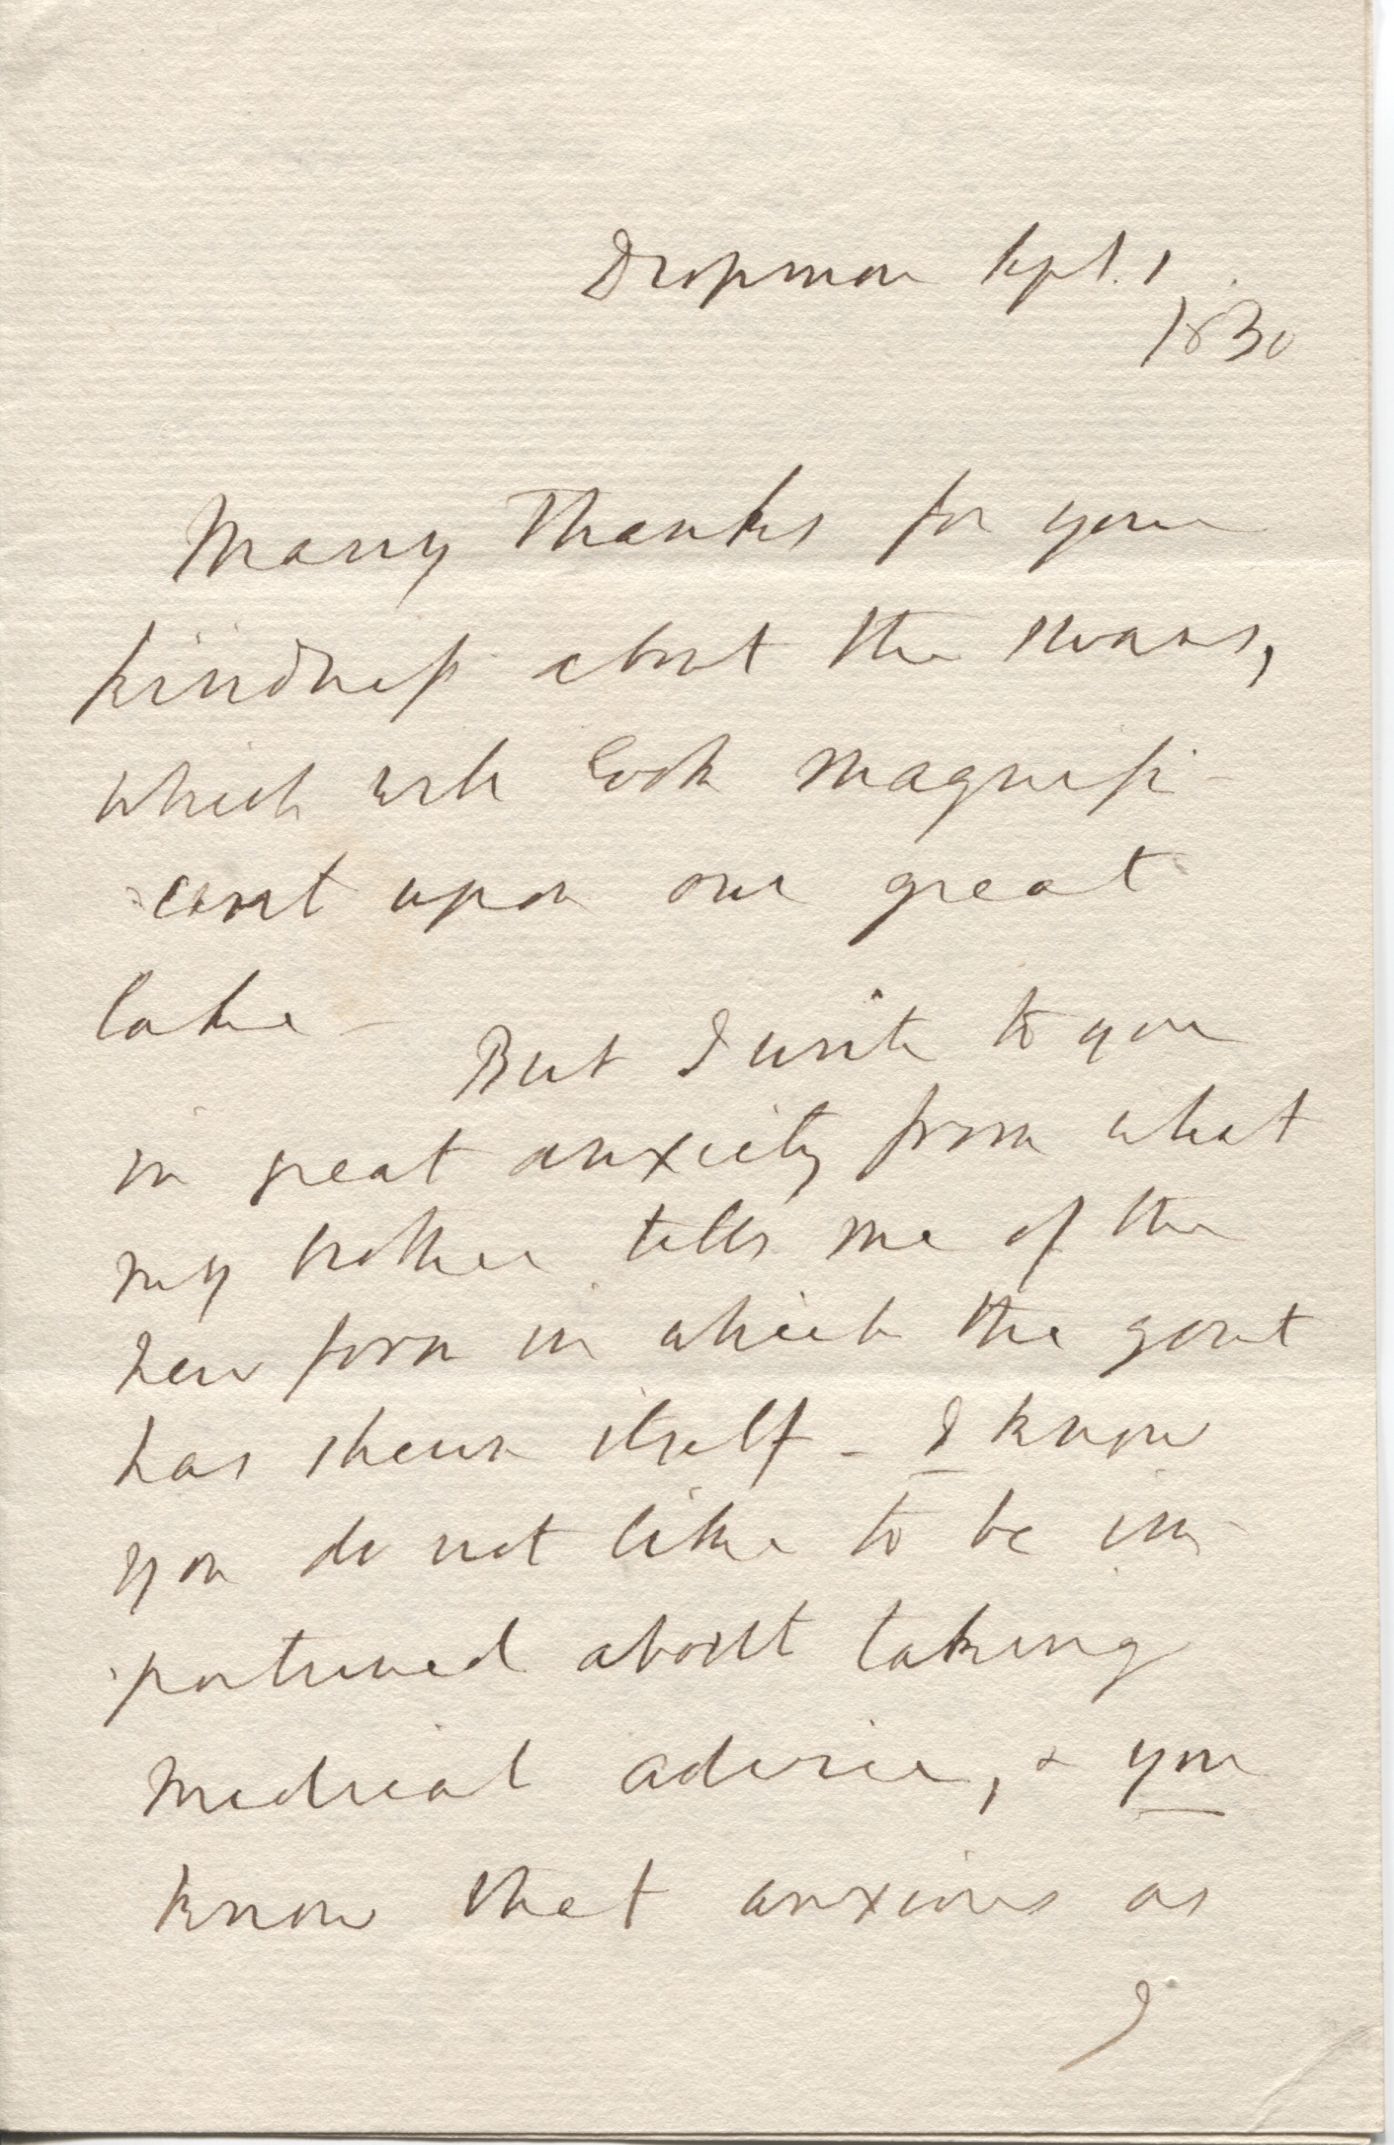 Dropmore Sept. 1.
1830
Many Thanks for your
kindness about the swans,
which will look magnifi-
-cent upon our great
lake - But I write to you
in great anxiety from what
my brother tells me of the
new form in which the gout
has shewn itself - I know
you do not like to be im-
-portuned about taking
medical advice, & you
know that anxious as
I